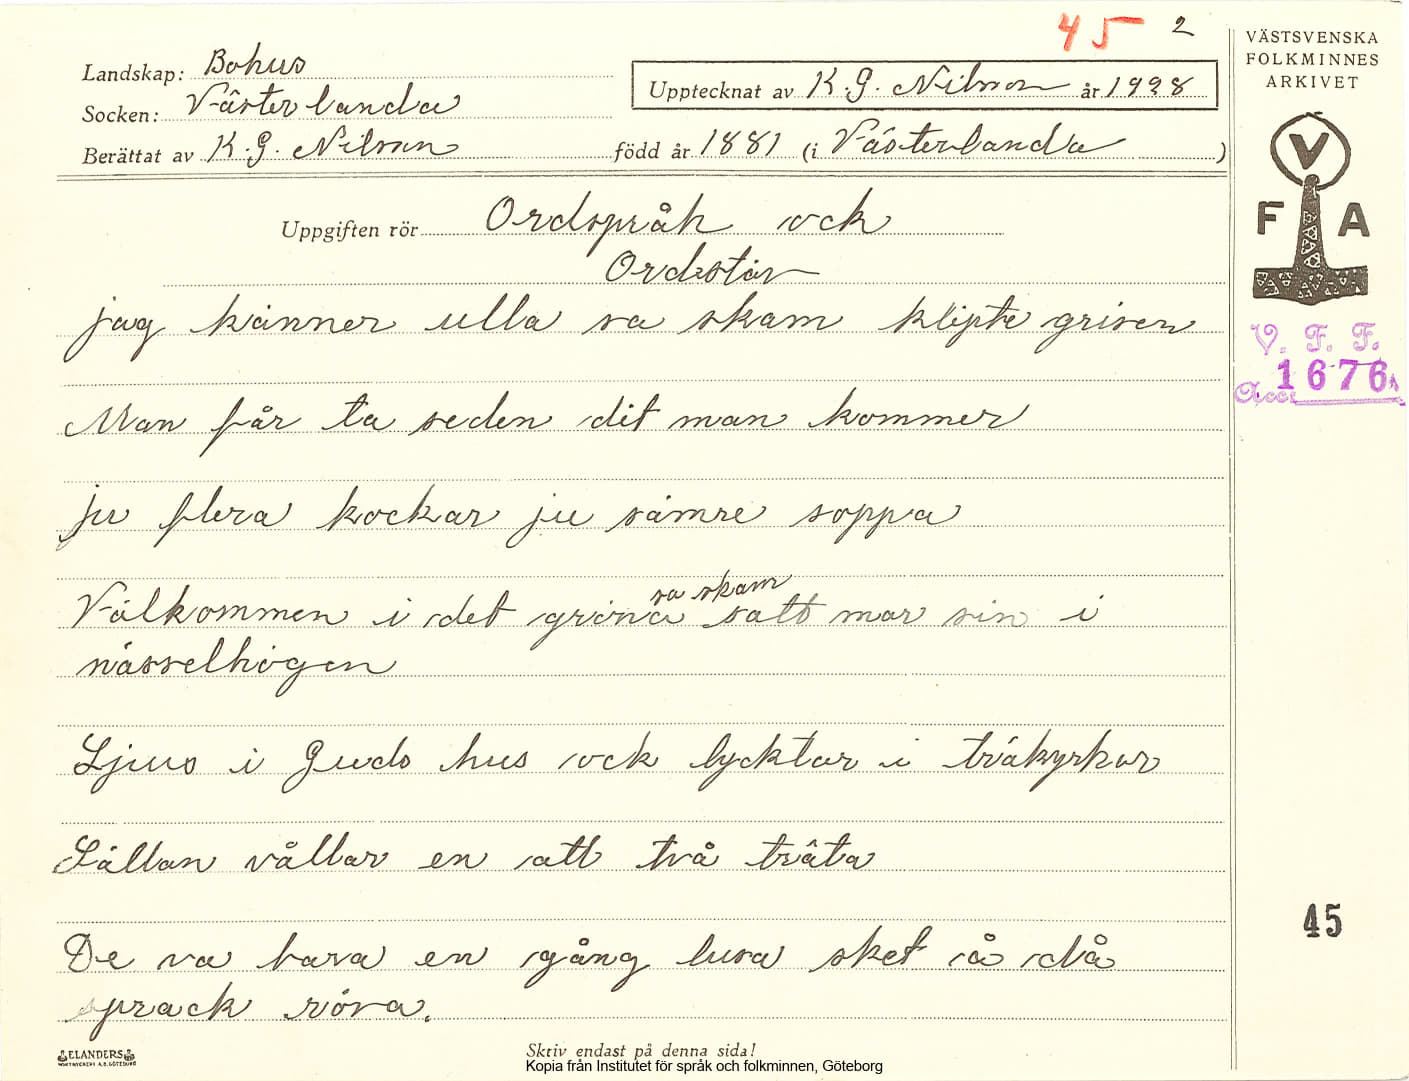 45 2
Landskap: Bohus
Socken: Västerlanda
Upptecknat av K. G. Nilsson år 1928
Berättat av K. G. Nilson född år 1881 (i Västerlanda )
Uppgiften rör Ordspråk ock
Ordstäv
jag känner ulla sa skam klipte grisen
Man får ta seden dit man kommer
ju flera kockar ju sämre soppa
Välkommen i det gröna sa skam satt mor sin i
nässelhögen
Ljus i Guds hus ock lycktor i träkyrkor
Sällan vållar en att två träta
De va bara en gång lusa sket å då
sprack röva.
VÄSTSVENSKA
FOLKMINNES
ARKIVET
V
F A
V. F. F.
Acc. 1676
45
ELANDERS
Skriv endast på denna sida!
Kopia från Institutet för språk och folkminnen, Göteborg